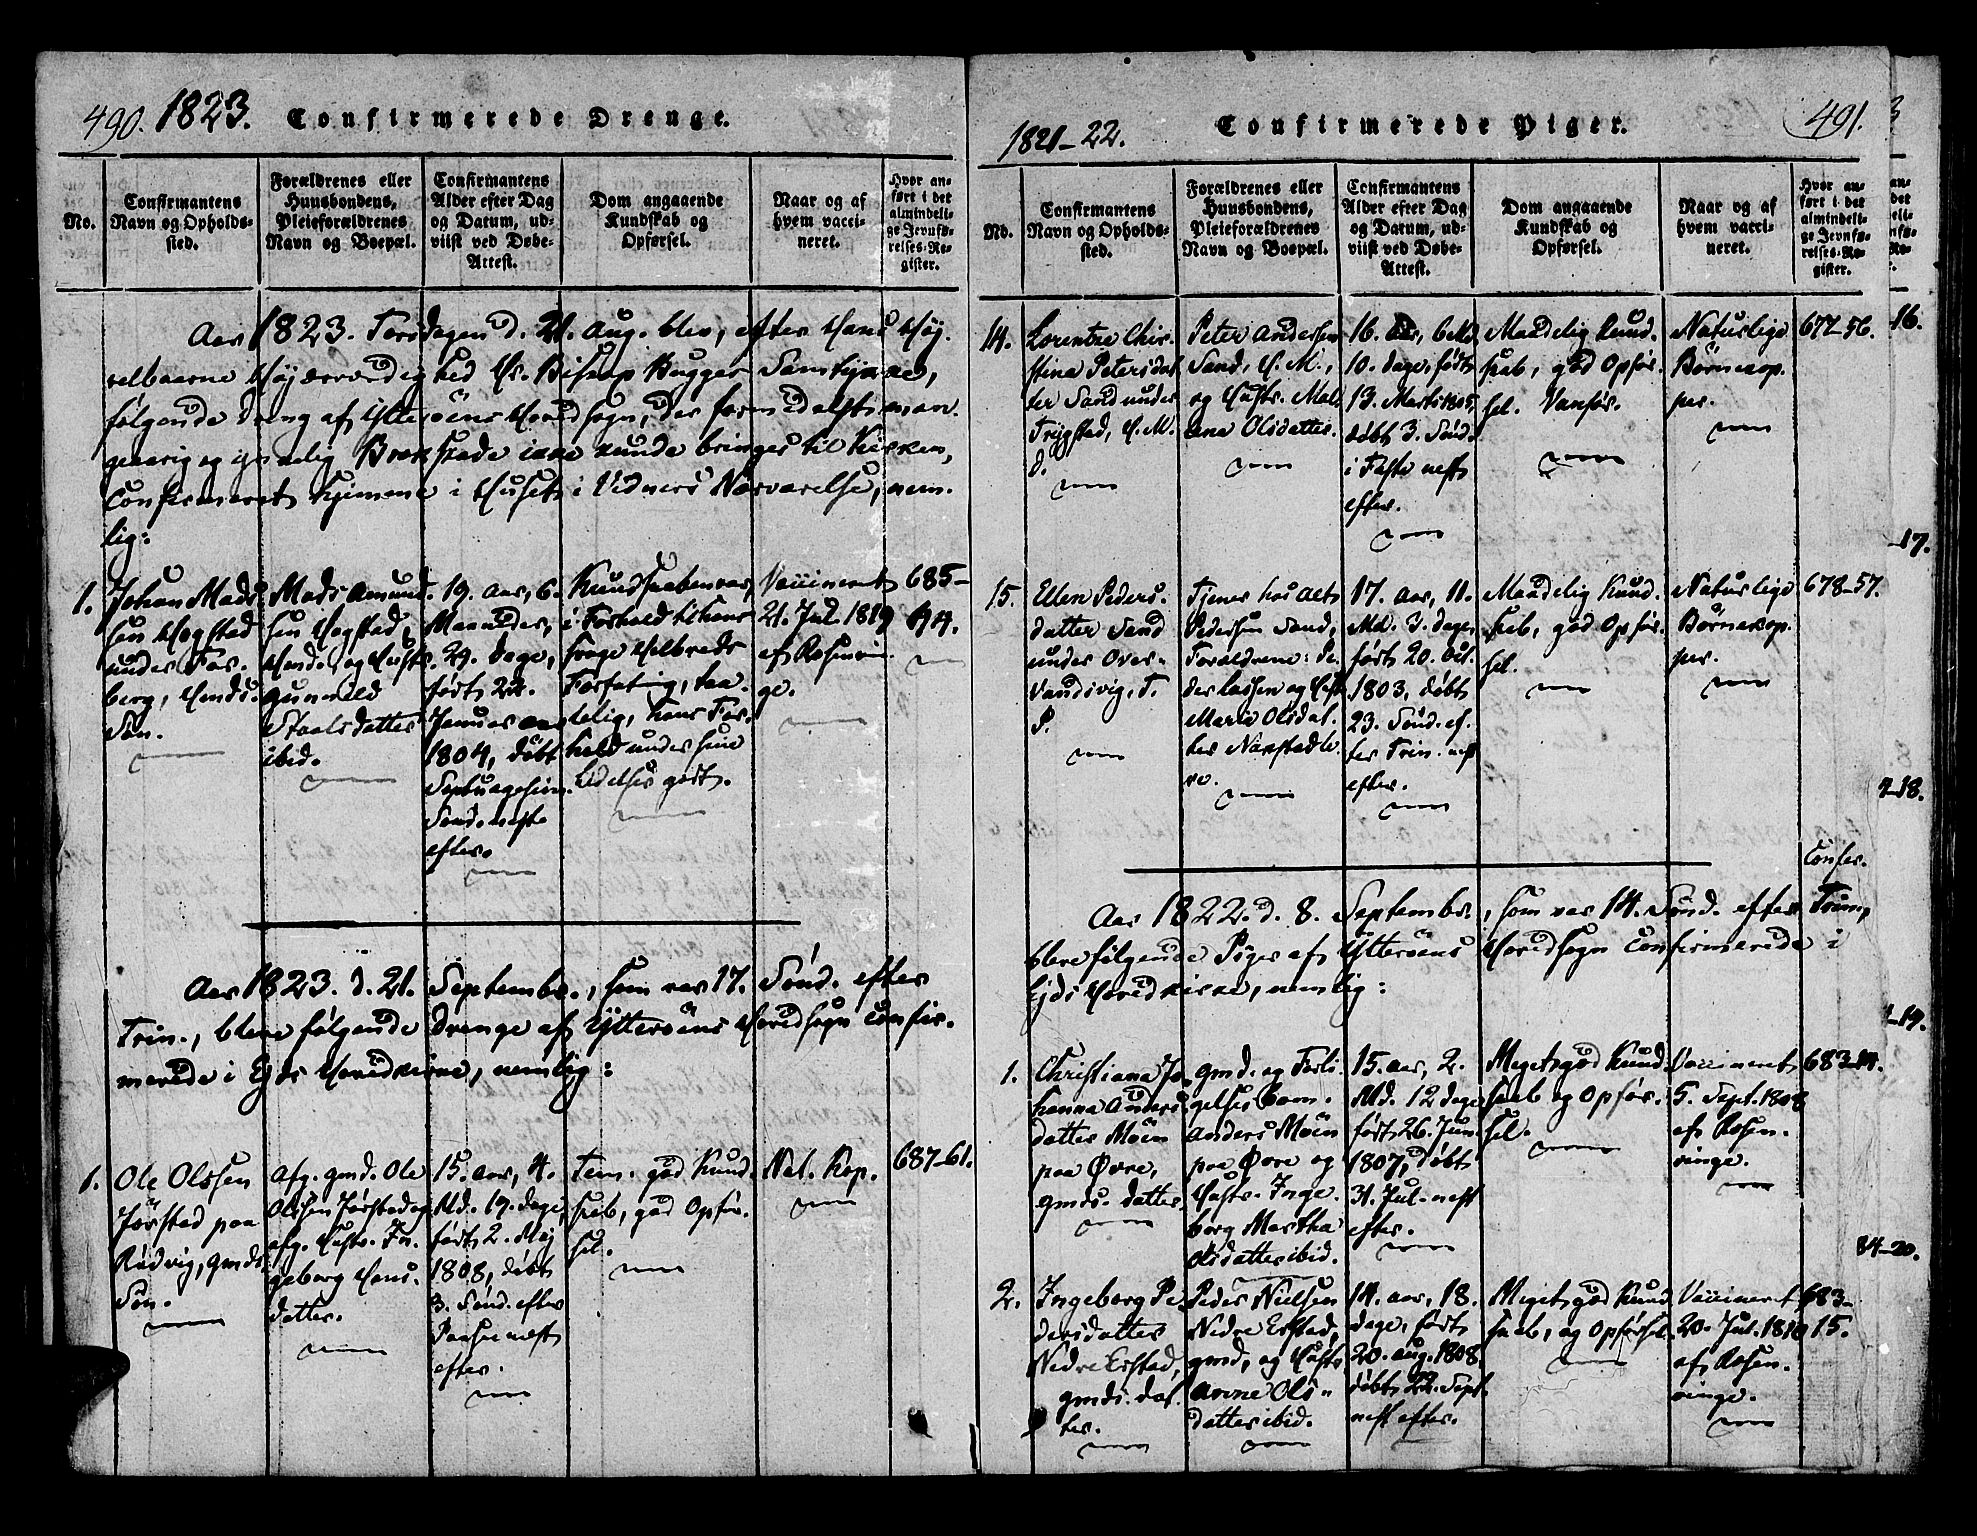 490. 1823. Confirmerede Drenge.
No.
Confirmantens
Navn og Opholds-
sted.
Forældrenes eller
Huusbondens,
Pleieforældrenes
Navn og Boepæl.
Confirmantens
Alder efter Dag
og Datum, ud-
viist ved Døbe-
Attest.
Dom angaaende
Kundskab og
Opførsel.
Naar og af
hvem vacci-
neret.
Hvor an-
ført i det
almindeli-
ge Jevnfø-
relses-Re-
gister.
Aar 1823. Torsdagen d. 21. Aug. blev, efter Hans Høj-
velbaarne Højærværdighed Hr. Biskop Bugges Samtykke,
følgende Dreng af Ytterøens Hovedsogn, der formedelst
og Brøkskade ikke kunde bringes til Kirken,
Confirmeret hjemme i Huset i Vidners Nærværelse, nem-
lig:
1.
Johan Mads-
sen Hogstad
under For-
berg,
Søn.
Mads Amund-
sen Hogstad,
og Hustr.
Gunnild
Staalsdatter
ibid.
19. Aar, 6.
Maaneder,
29. Dage,
født 22.
Januar
1804, døbt
Septuagesim.
Sønd. næst
efter.
Kundskaben var,
i Forhold til hans
svage Helbreds
Forfatning, taa-
lelig, hans For-
hold under sine
Lidelser godt.
Vaccineret
21. Jul. 1819
af Rosenvin-
ge.
685-
94.
Aar 1823. d. 21. September, som var 17. Sønd. efter
Trin., bleve følgende Drenge af Ytterøens Hovedsogn Confir-
merede i Ejds Hovedkirke, nemlig:
1.
Ole Olssen
Jørstad paa
Rødvig, Gmds.
Søn.
Afg. Gmd. Ole
Olssen Jørstad og
afg. Hustr. In-
geborg Hans-
datter.
15. Aar, 4.
Md. 19. Dage,
født 2. Maj
1808, døbt
3. Sønd. efter
Paaske næst
efter.
Tem. god Kund-
skab, god Opfør-
sel.
Nat. Kop.
687-61.
1821-22. Confirmerede Piger. 491.
No.
Confirmantens
Navn og Opholds-
sted.
Forældrenes eller
Huusbondens,
Pleieforældrenes
Navn og Boepæl.
Confirmantens
Alder efter Dag
og Datum, ud-
viist ved Døbe-
Attest.
Dom angaaende
Kundskab og
Opførsel.
Naar og af
hvem vacci-
neret.
Hvor an-
ført i det
almindeli-
ge Jevnfø-
relses-Re-
gister.
14.
Lorentze Chri-
stina Petersdat-
ter Sand under
Trygstad, H. M.
D.
Peter Andersen
Sand, H. M.,
og Hustr. Mal-
ena Olsdatter.
16. Aar, 6 Md.
10. Dage, født
13. Marts 1805,
døbt 3. Sønd.
i Faste næst
efter.
Maadelig Kund-
skab, god Opfør-
sel. Vanfør.
Naturlige
Børnekop-
per.
677-56.
15.
Ellen Peders-
datter Sand
under Over-
Vandsvig, T.
P.
Tjener hos Aelt
Pedersen Sand,
Forældrene: Pe-
der Lassen og Hust.
Marie Olsdat-
ter Naustadle-
re.
17. Aar, 11.
Md. 3. Dage,
født 20. Oct.
1803, døbt
23. Sønd. ef-
ter Trin. næst
efter.
Maadelig Kund-
skab, god Opfør-
sel.
Naturlige
Børnekop-
per.
678-57.
Confir.
Aar 1822. d. 8. September, som var 14. Sønd. efter Trin.,
bleve følgende Piger af Ytterøens Hovedsogn Confirmerede i
Ejds Hovedkirke, nemlig:
1.
Christiana Jo-
hanna Anders-
datter Møen
paa Øvre,
Gmds. Datter.
Gmd. og Forli-
gelses Com.
Anders Møen
paa Øvre og
Hustr. Inge-
borg Martha
Olsdatter ibid.
15. Aar, 2.
Md. 12 Dage,
født 26. Jun.
1807, døbt
31. Jul. næst
efter.
Meget god Kund-
skab og Opfør-
sel.
Vaccineret
5. Sept. 1808
af Rosen-
vinge.
683-14.
2.
Ingeborg Pe-
dersdatter
Nedre Erstad,
Gmds. Dat-
ter.
Peder Nielsen
Nedre Erstad,
Gmd, og Hustr.
Anne Ols-
datter ibid.
14. Aar, 18.
Dage, født
20. Aug. 1808.
døbt 22. Sept.
næst efter.
Meget god Kund-
skab, og Opførsel.
Vaccineret
20. Jul. 1810
af Rosen-
vinge.
683-
15.
16.
-17.
-18.
-19.
84-20.